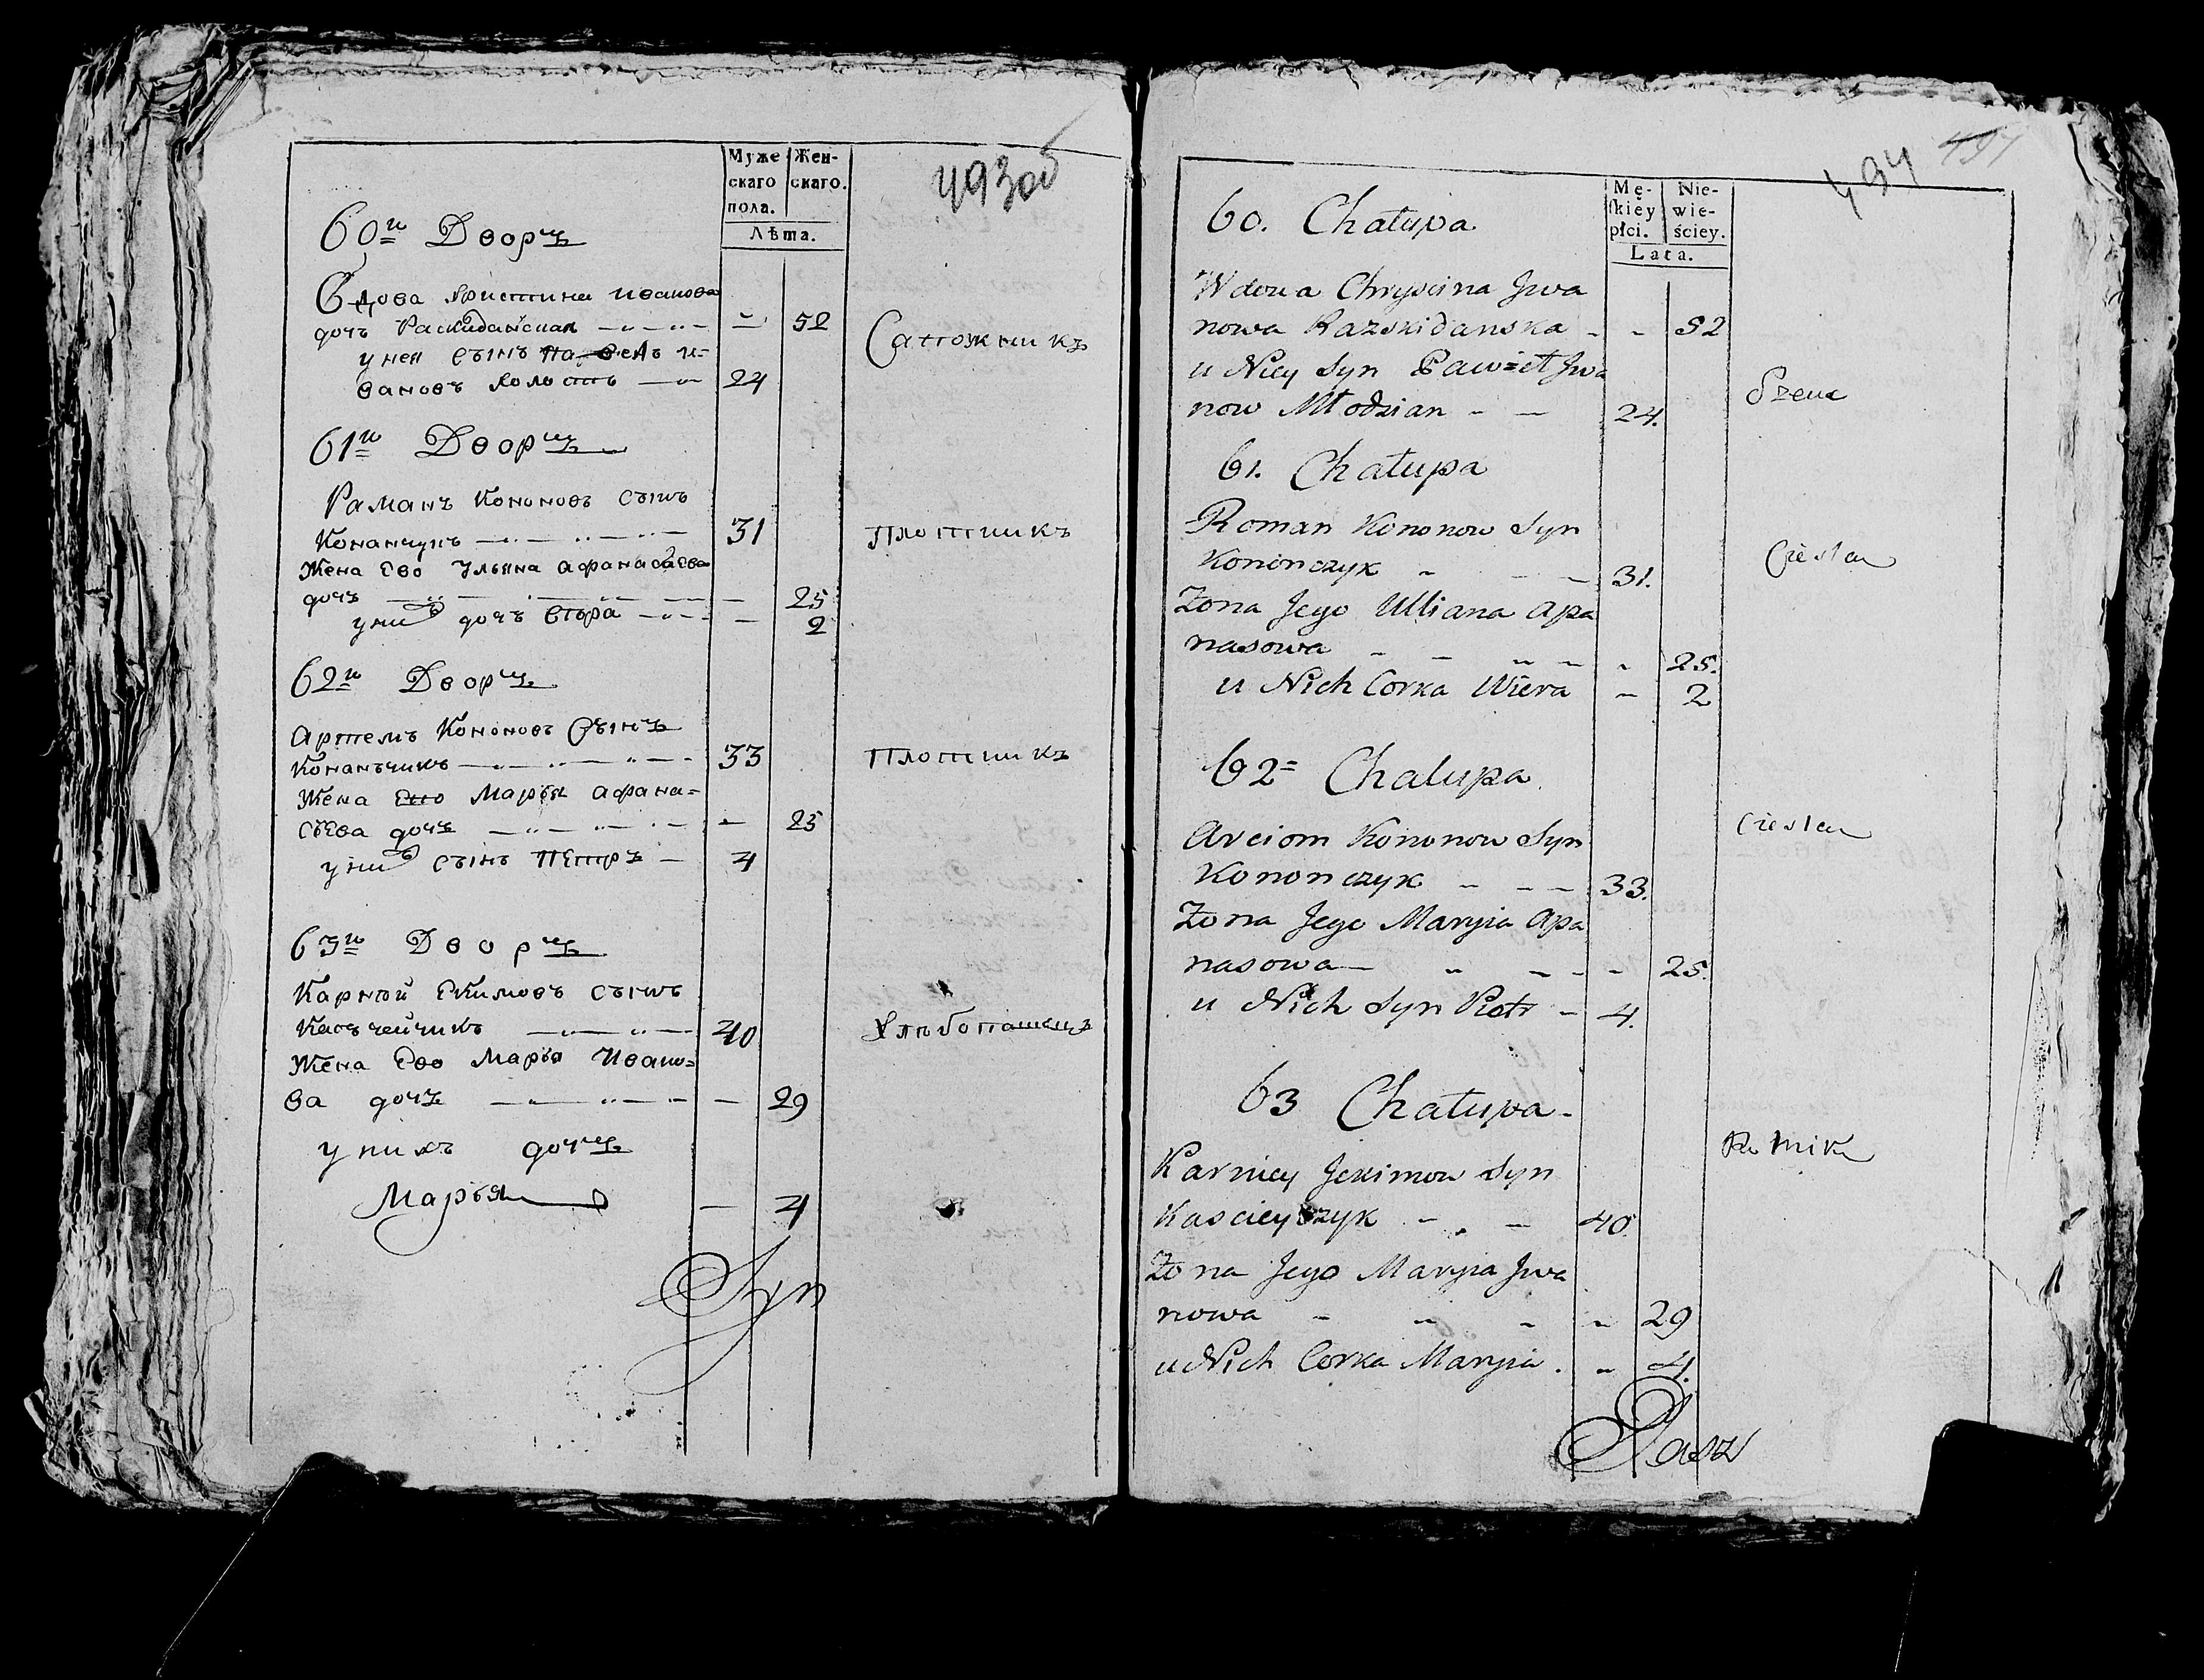 Муже Жен-
скаго скаго.
пола.
Лѣта.
493об
60й Дворъ
Вдова Христина Иванова
дочъ Раскиданская 52
Сапожникъ
у неи сынъ Павелъ И-
вановъ холостъ 24
61й Дворъ
Раманъ Кононовъ сынъ
Кананчукъ 31 плотникъ
Жена Ево Ульяна Афанасьева
дочъ 25
у них дочъ Вѣра 2
62й Дворъ
Артемъ Кононовъ Сынъ
Конанъчикъ 33 плотникъ
Жена Ево Марья Афана=
сьева дочъ 25
у них сынъ Петръ 4
63й Дворъ
Карнѣй Екимовъ сынъ
Касъчейчикъ 40 Хлѣбопашецъ
Жена Ево Марья Ивано=
ва дочъ 29
у нихъ дочъ
Марья 4
Syn
494
Mę- Nie-
skiéy wie-
płci. ściey.
Lata.
60. Chałupa
Wdowa Chryscina Jwa
nowa Razskidanska 52
u Niey Syn Pawieł Jwa
Szewc
now Młodzian 24.
61. Chałupa
Roman Kononow Syn
Cieśla
Kononczyk 31.
Żona Jego Ulliana Apa
nasowa 25.
u Nich Corka Wiera 2
62 Chałupa
Arciom Kononow Syn
Cieśla
Kononczyk 33.
Żona Jego Maryia Apa
nasowa 25.
u Nich Syn Piotr 4.
63 Chałupa
Karniey Jekimow Syn
Kascieyczyk 40.
Żona Jego Maryia Jwa
nowa 29
u Nich Corka Maryia 4.